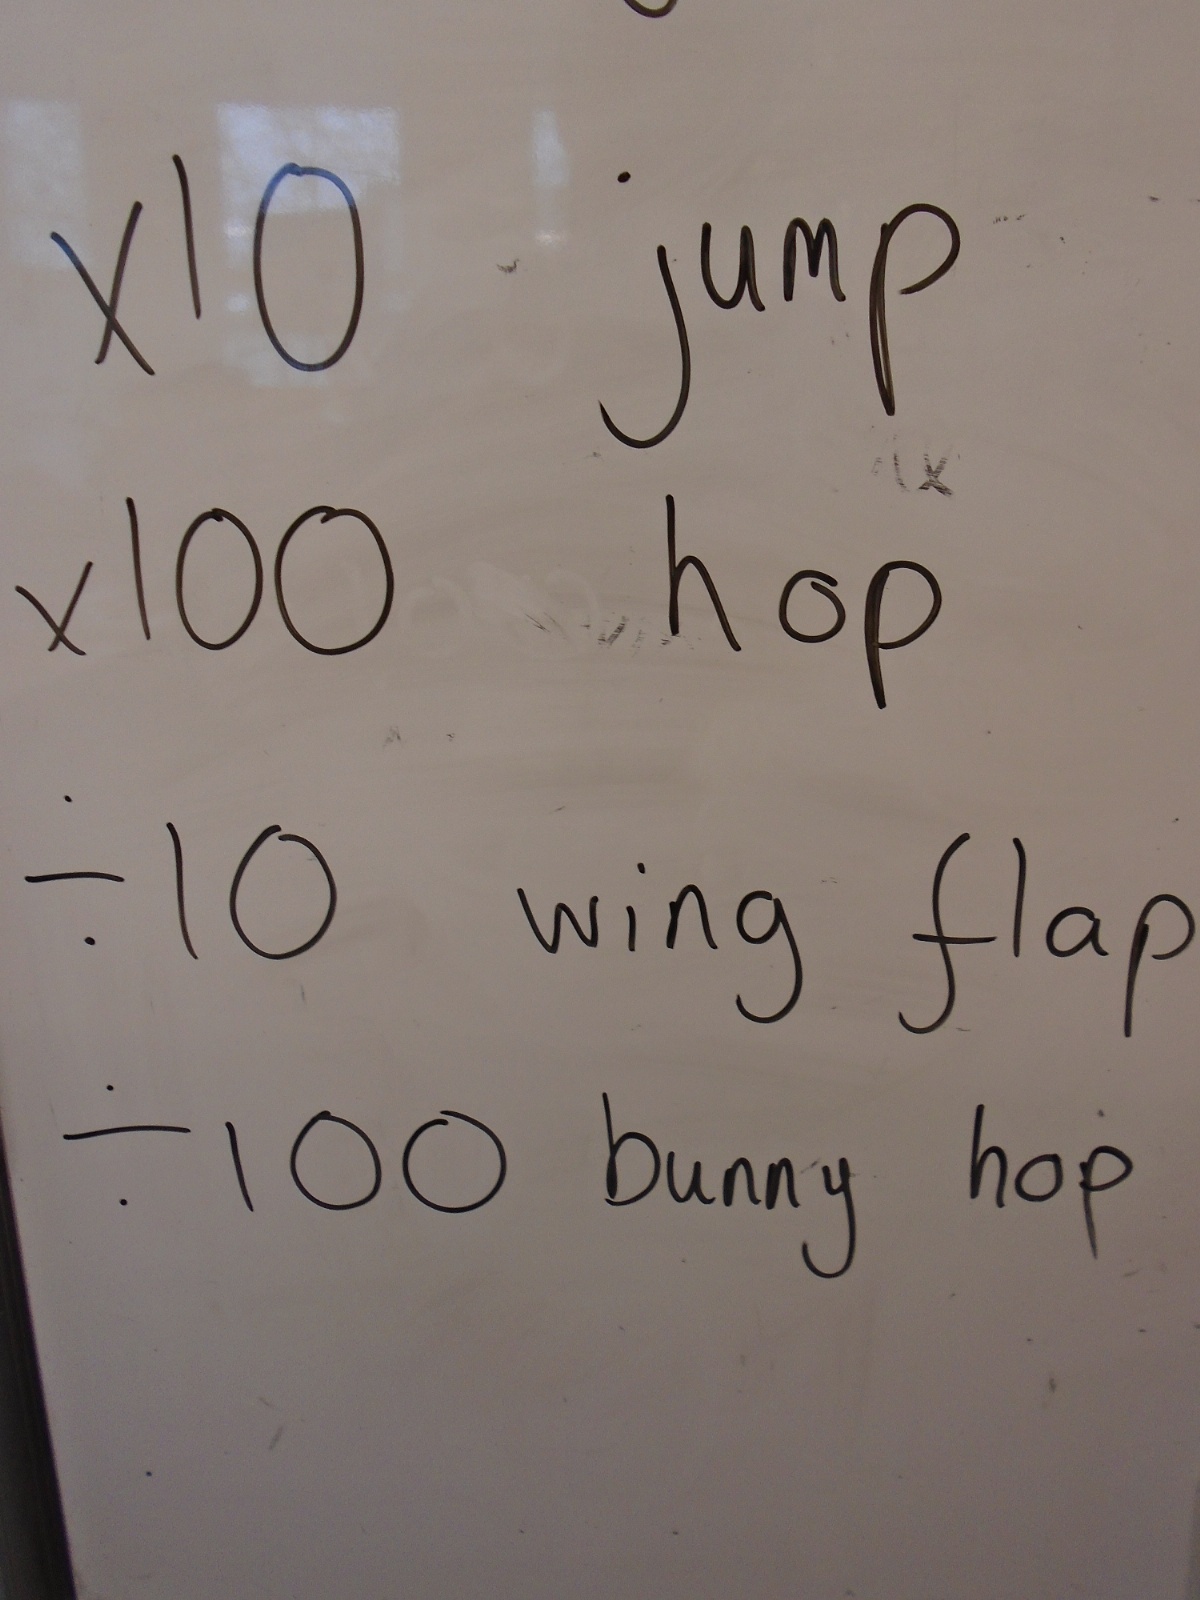 x10 jump
x100 hop
÷10 wing flap
÷100 bunny hop